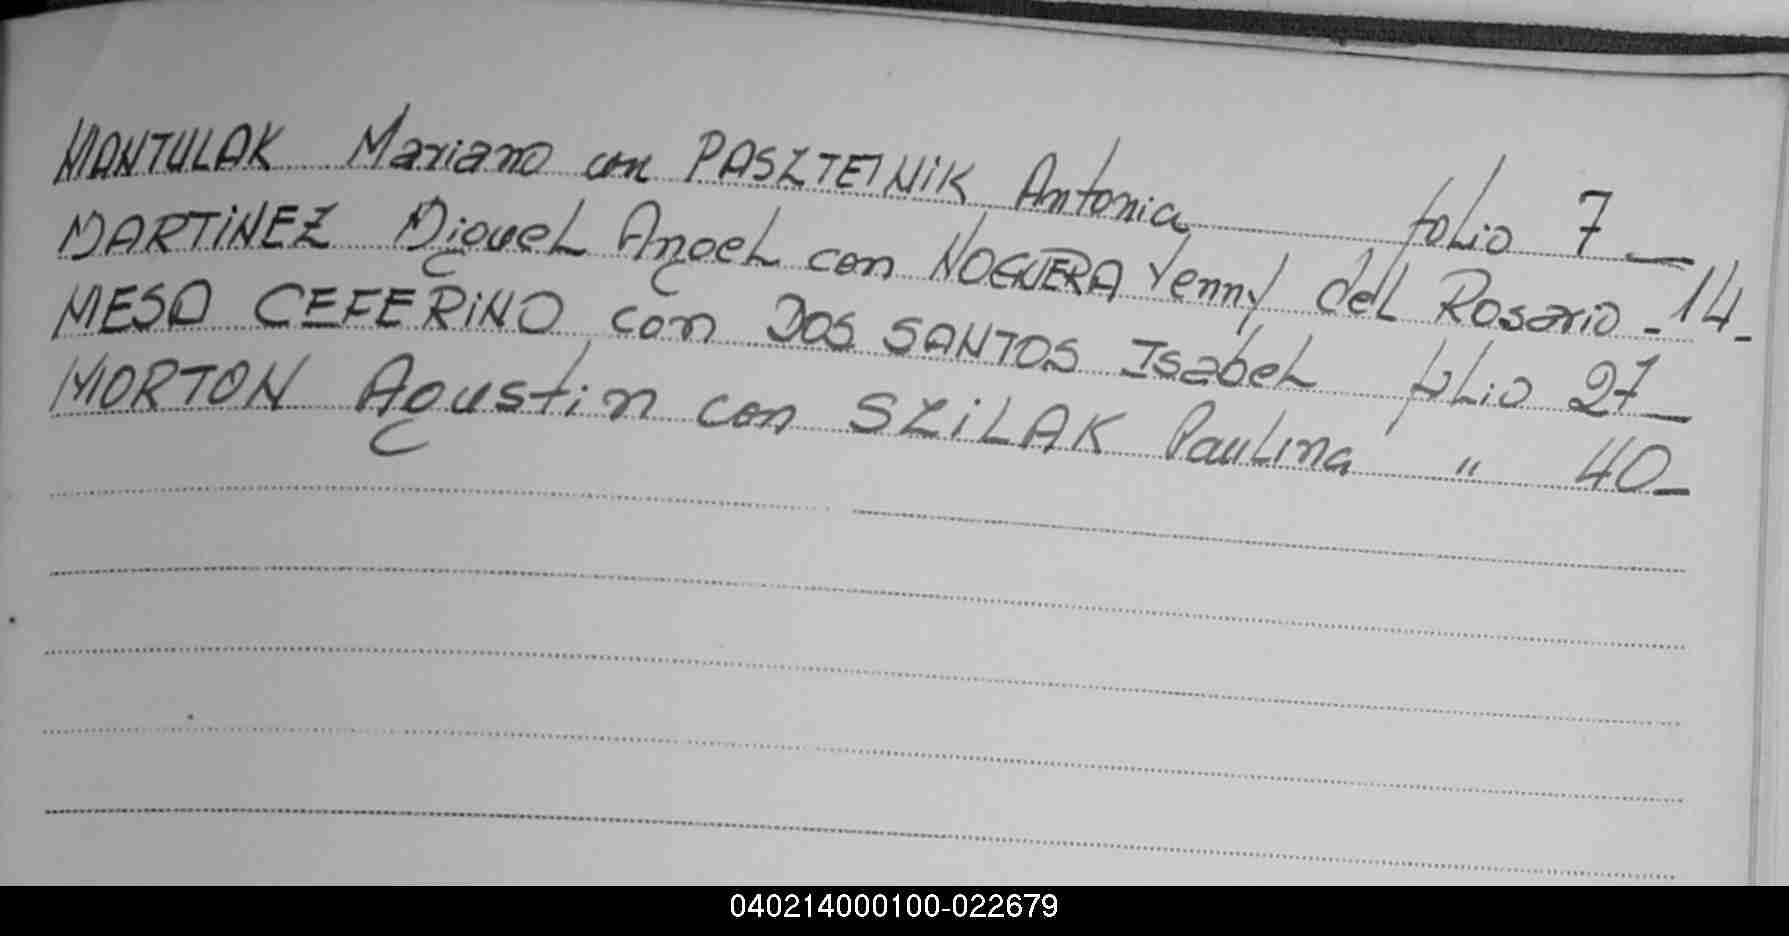 MANTULAK Mariano con PASZTETNIK Antonia folio 7 _
MARTINEZ Miguel Angel con NOGUERA Yenny del Rosario - 14 -
MESA CEFERINO con DOS SANTOS Isabel folio 27 _
MORTON Agustin con SZILAK Paulina " 40 -
040214000100-022679